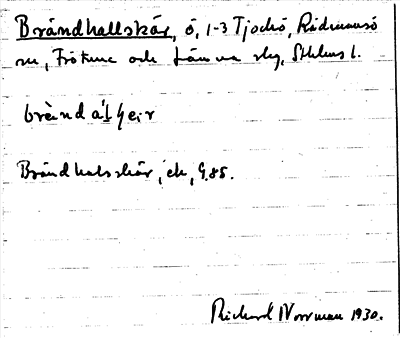 Brändhallskär, ö, 1-3 Tjockö, Rådmansö
sn, Frötuna och Länna slg, Sthlms l.
brä̀nd a᷄ļ ɧe̢i r
Brändhalsskär, ek, G.85.
Richard Norrman 1930.